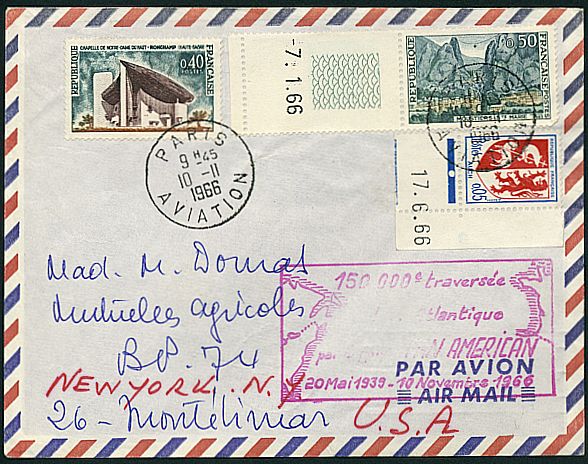 CHAPELLE DE NOTRE-DAME DU HAUT - RONCHAMP (HAUTE-SAÔNE)
0,40
POSTES
REPUBLIQUE
FRANÇAISE
-7. 1.66
0,50
REPUBLIQUE
FRANÇAISE
PARIS
9 H45
10 -11
1966
AVIATION
REPUBLIQUE FRANÇAISE
0,05
17.6.66
Mad. M. Dornas
Mutuelles agricoles
BP. 74
NEW YORK, N.Y
26 - Montélimar
U.S.A
150 000e traversée
Atlantique
PAN AMERICAN
20 Mai 1939 - 10 Novembre 1966
PAR AVION
AIR MAIL